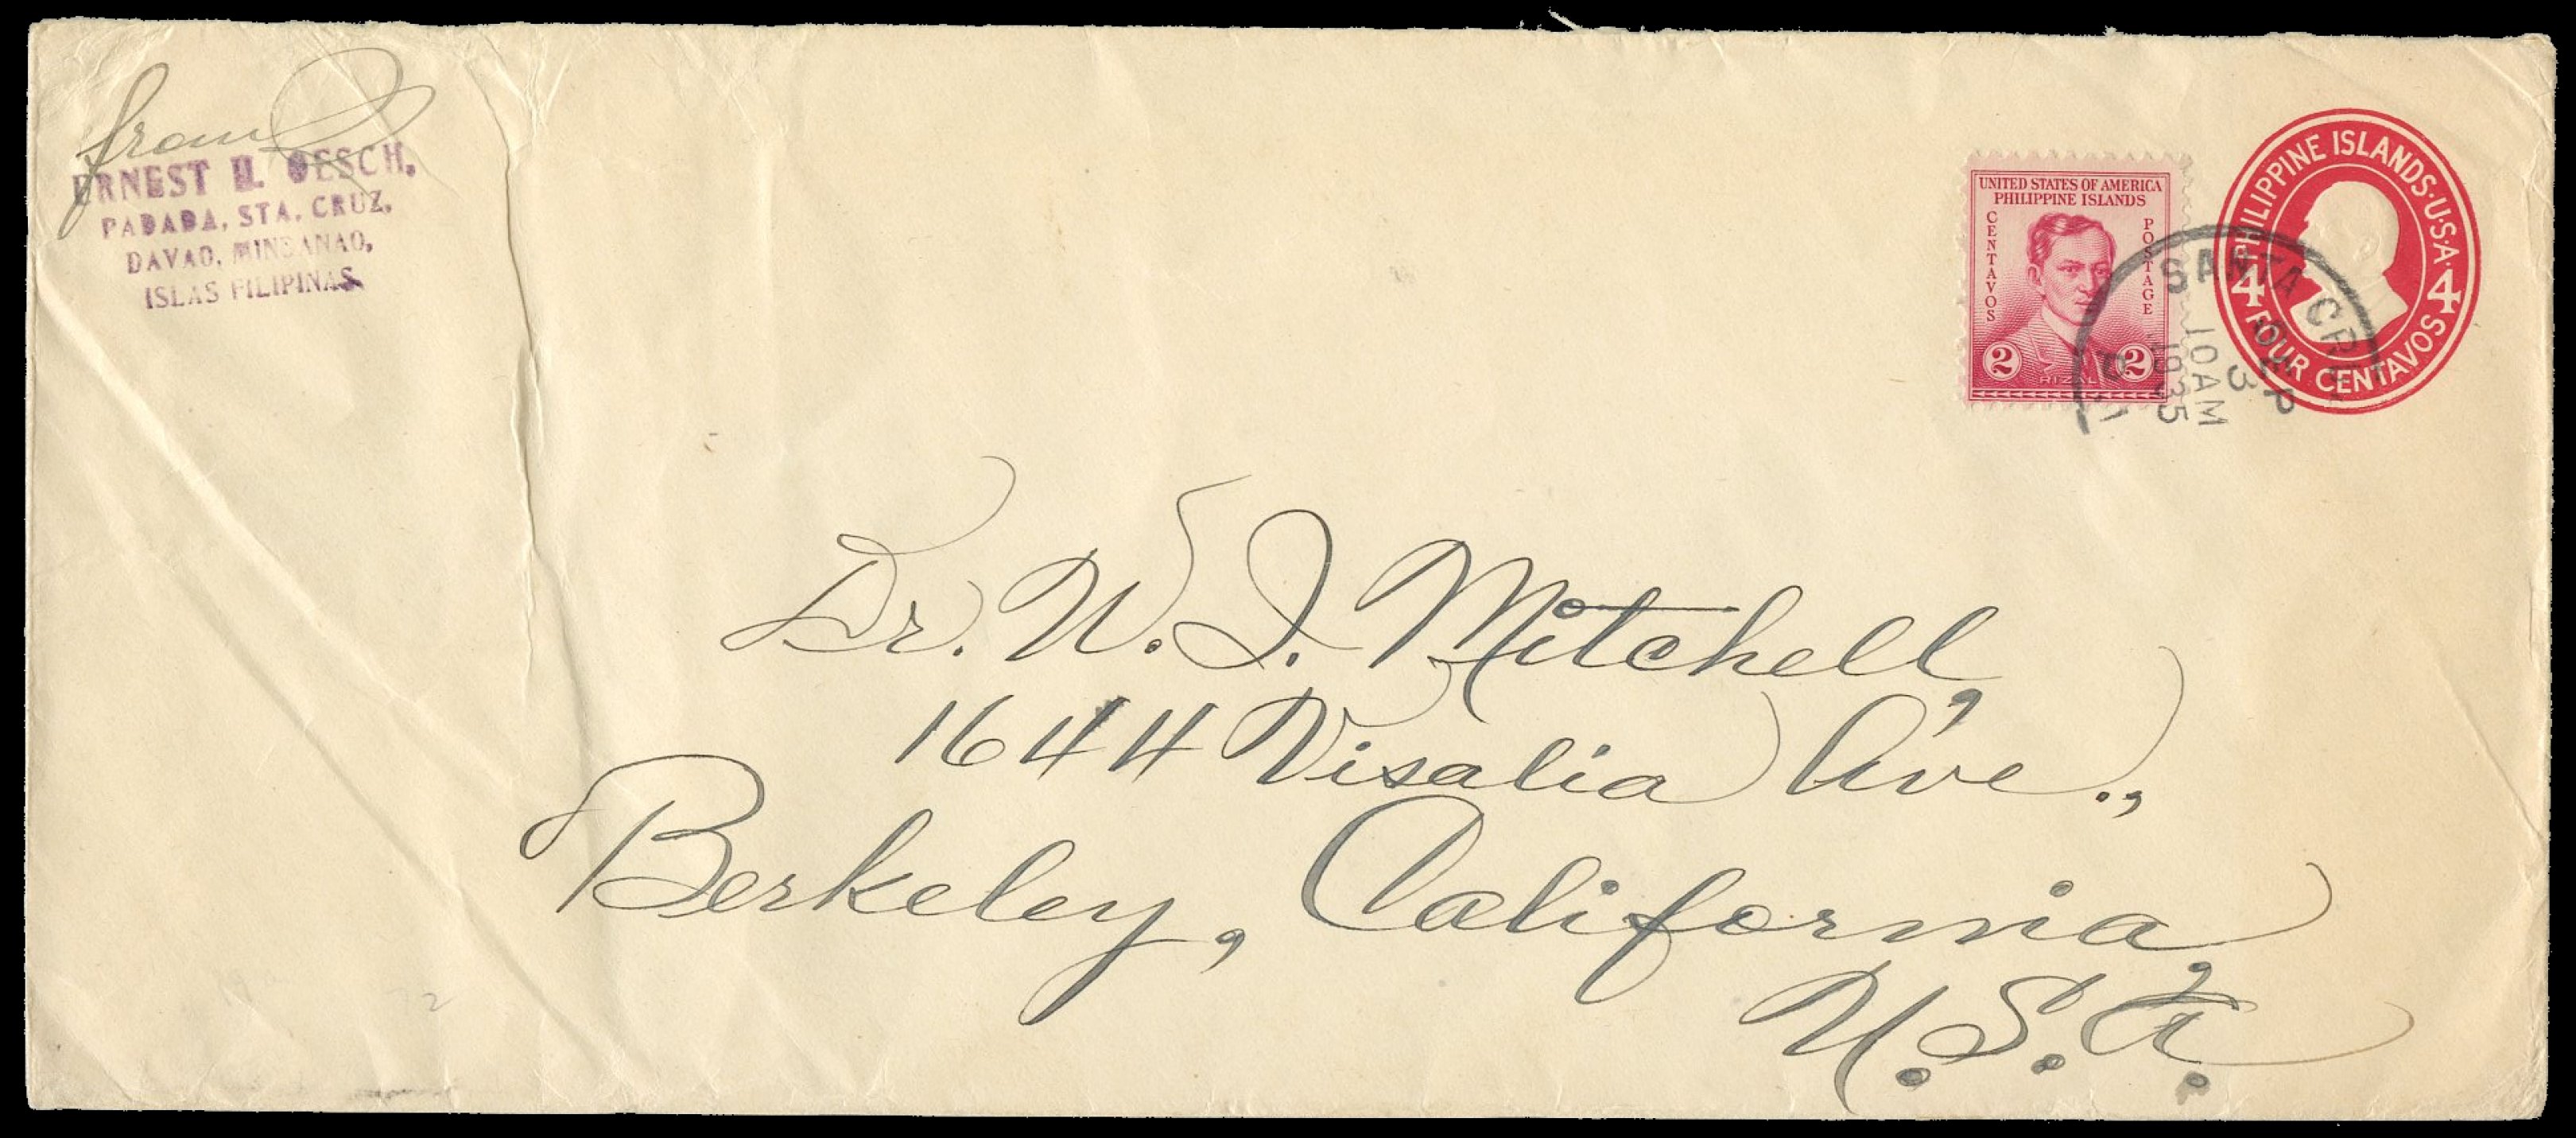 from
ERNEST H. OESCH,
PADADA, STA. CRUZ,
DAVAO, MINDANAO,
ISLAS FILIPINAS.
UNITED STATES OF AMERICA
PHILIPPINE ISLANDS
CENTAVOS
POSTAGE
2 2
RIZAL
PHILIPPINE ISLANDS·U·S·A·
4 4
FOUR CENTAVOS
SANTA CRUZ
SEP
3
10AM
1935
P.I.
Dr. W. J. Mitchell,
1644 Visalia Ave.,
Berkeley, California,
U.S.A.